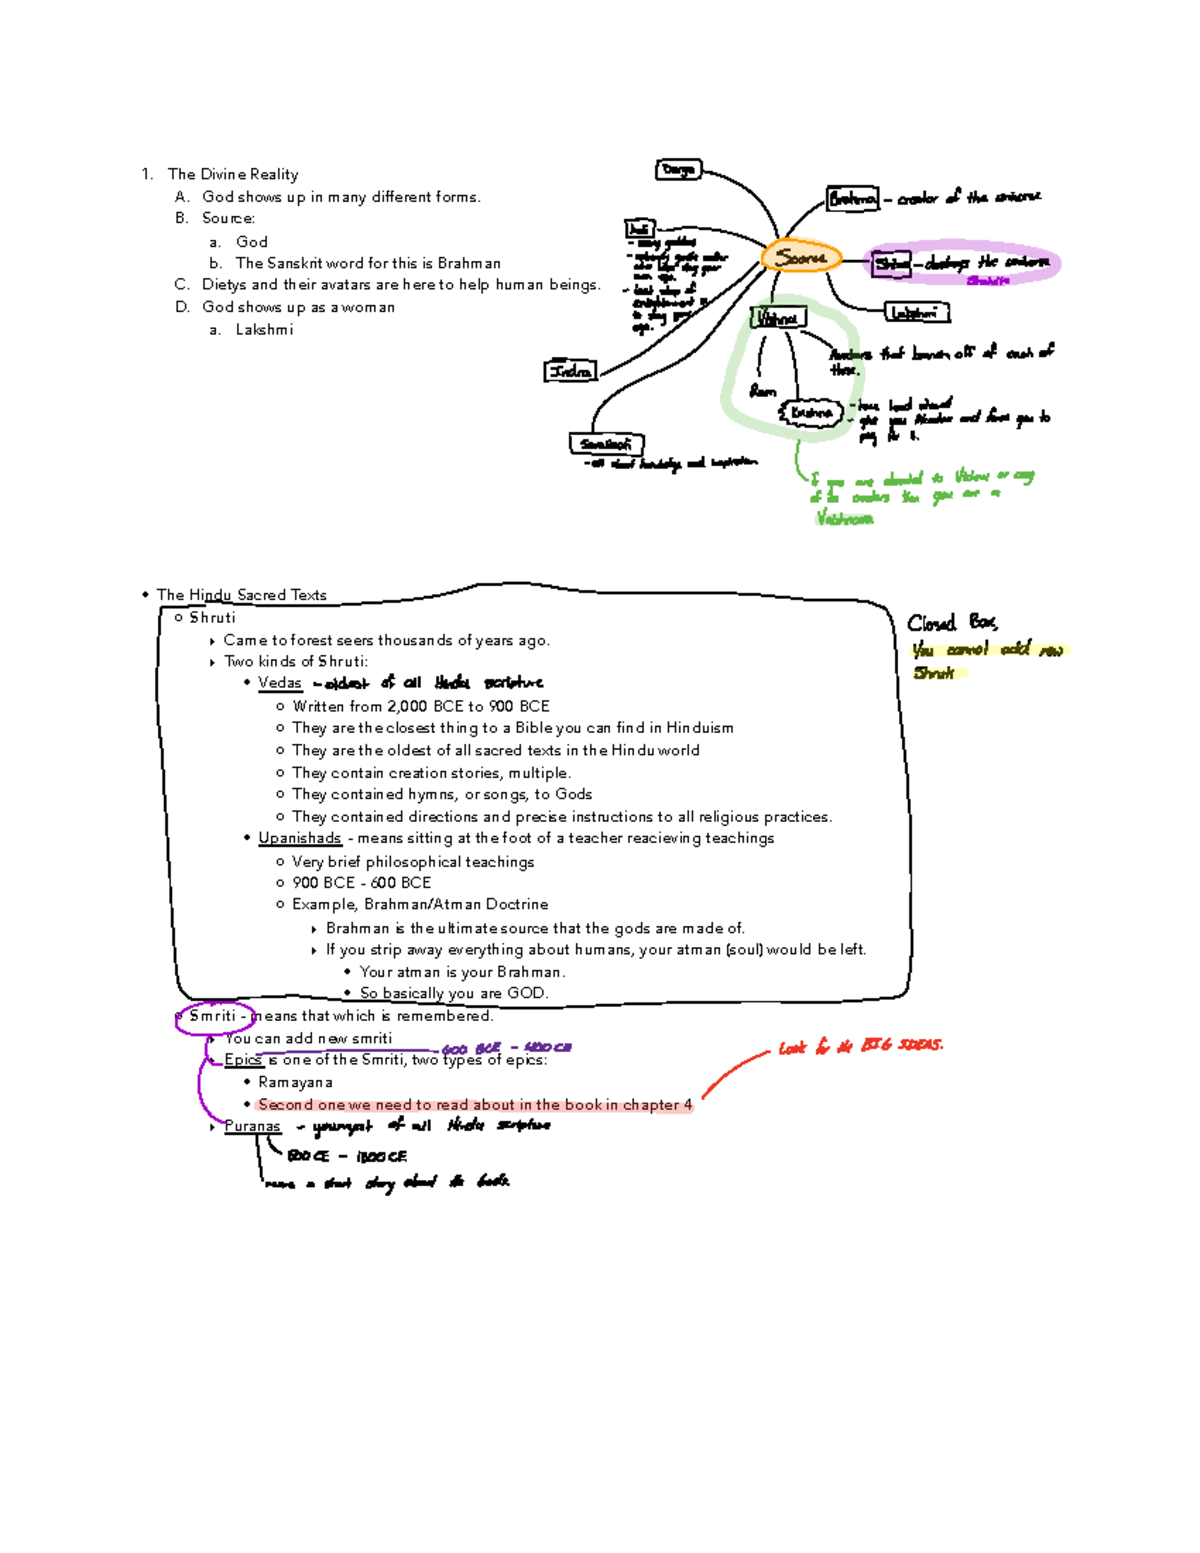 1. The Divine Reality
A. God shows up in many different forms.
B. Source:
a. God
b. The Sanskrit word for this is Brahman
C. Dietys and their avatars are here to help human beings.
D. God shows up as a woman
a. Lakshmi
Durga
Brahma - creator of the universe
Kali
Source
Shiva - destroys the universe
Lakshmi
Vishnu
Avatars that branch off of each of
these.
Indra
Ram
Krishna
- all about knowledge and inspiration
If you are devoted to Vishnu or any
of the avatars then you are a
• The Hindu Sacred Texts
○ Shruti
‣ Came to forest seers thousands of years ago.
‣ Two kinds of Shruti:
• Vedas - oldest of all Hindu scripture
○ Written from 2,000 BCE to 900 BCE
○ They are the closest thing to a Bible you can find in Hinduism
○ They are the oldest of all sacred texts in the Hindu world
○ They contain creation stories, multiple.
○ They contained hymns, or songs, to Gods
○ They contained directions and precise instructions to all religious practices.
• Upanishads - means sitting at the foot of a teacher reacieving teachings
○ Very brief philosophical teachings
○ 900 BCE - 600 BCE
○ Example, Brahman/Atman Doctrine
‣ Brahman is the ultimate source that the gods are made of.
‣ If you strip away everything about humans, your atman (soul) would be left.
• Your atman is your Brahman.
• So basically you are GOD.
Closed Box,
You cannot add new
Shruti
○ Smriti - means that which is remembered.
‣ You can add new smriti
600 BCE - 400 CE
‣ Epics is one of the Smriti, two types of epics:
• Ramayana
• Second one we need to read about in the book in chapter 4
Look for the BIG IDEAS.
‣ Puranas - youngest of all Hindu scripture
means a short story about the Gods.